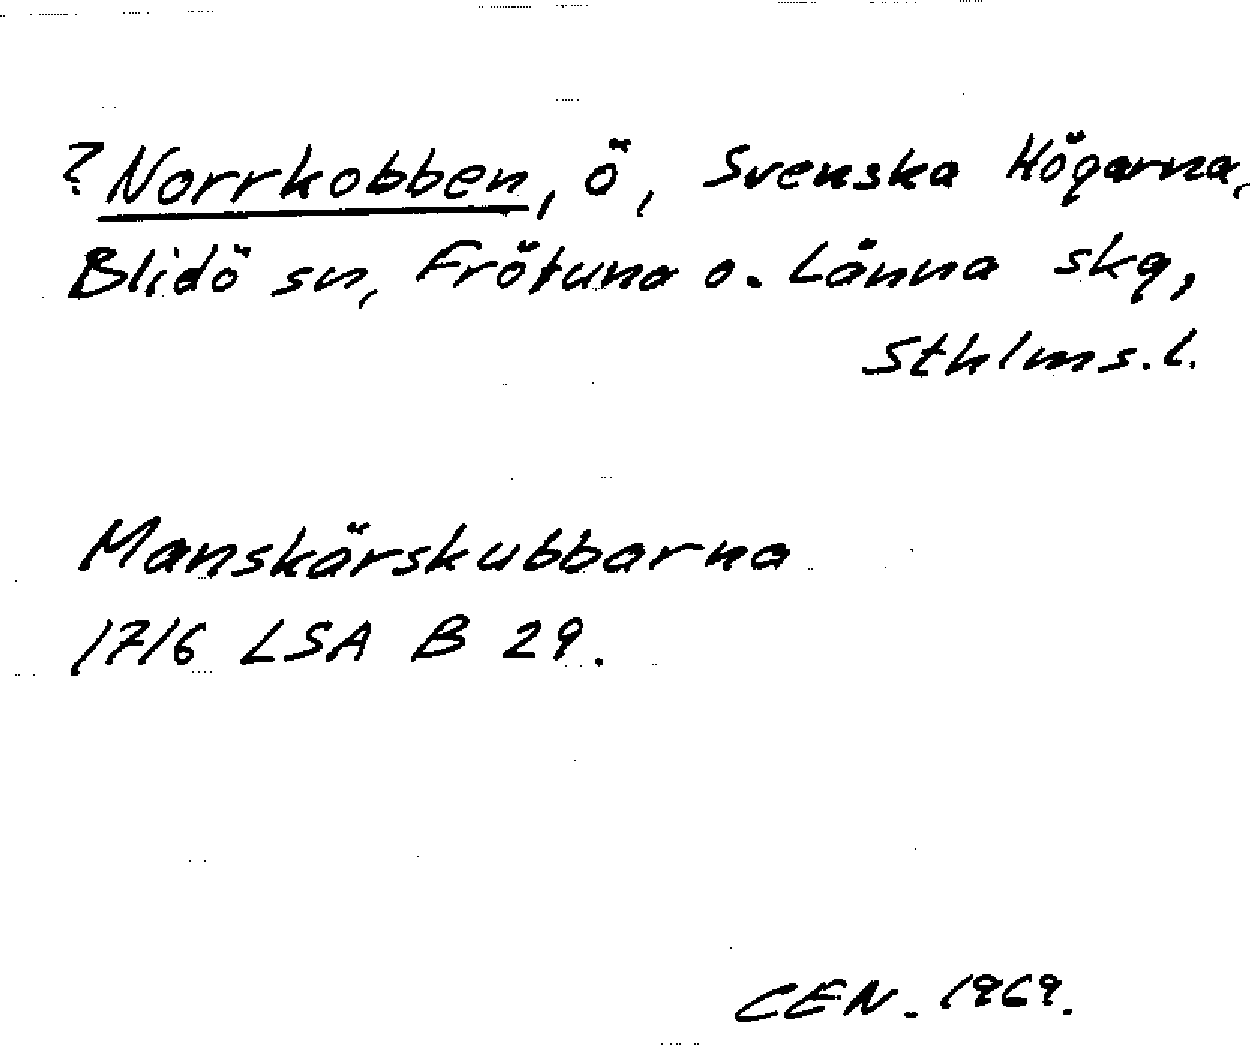 ? Norrkobben, ö, Svenska Högarna,
Blidö sn, Frötuna o. Länna skg,
Sthlms. l.
Manskärskubbarna
1716 LSA B 29.
CEN. 1969.